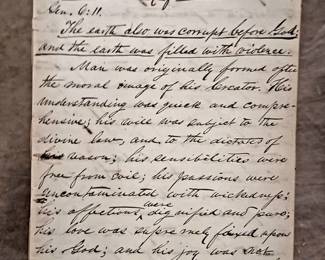 Gen. 6:11.
The earth also was corrupt before God;
and the earth was filled with violence.
Man was originally formed after
the moral image of his Creator. His
understanding was quick and compre-
hensive; his will was subject to the
divine law, and to the dictates of
reason; his sensibilities were
free from evil; his passions were
uncontaminated with wickedness;
his affections were dignified and pure;
his love was supremely fixed upon
his God; and his joy was